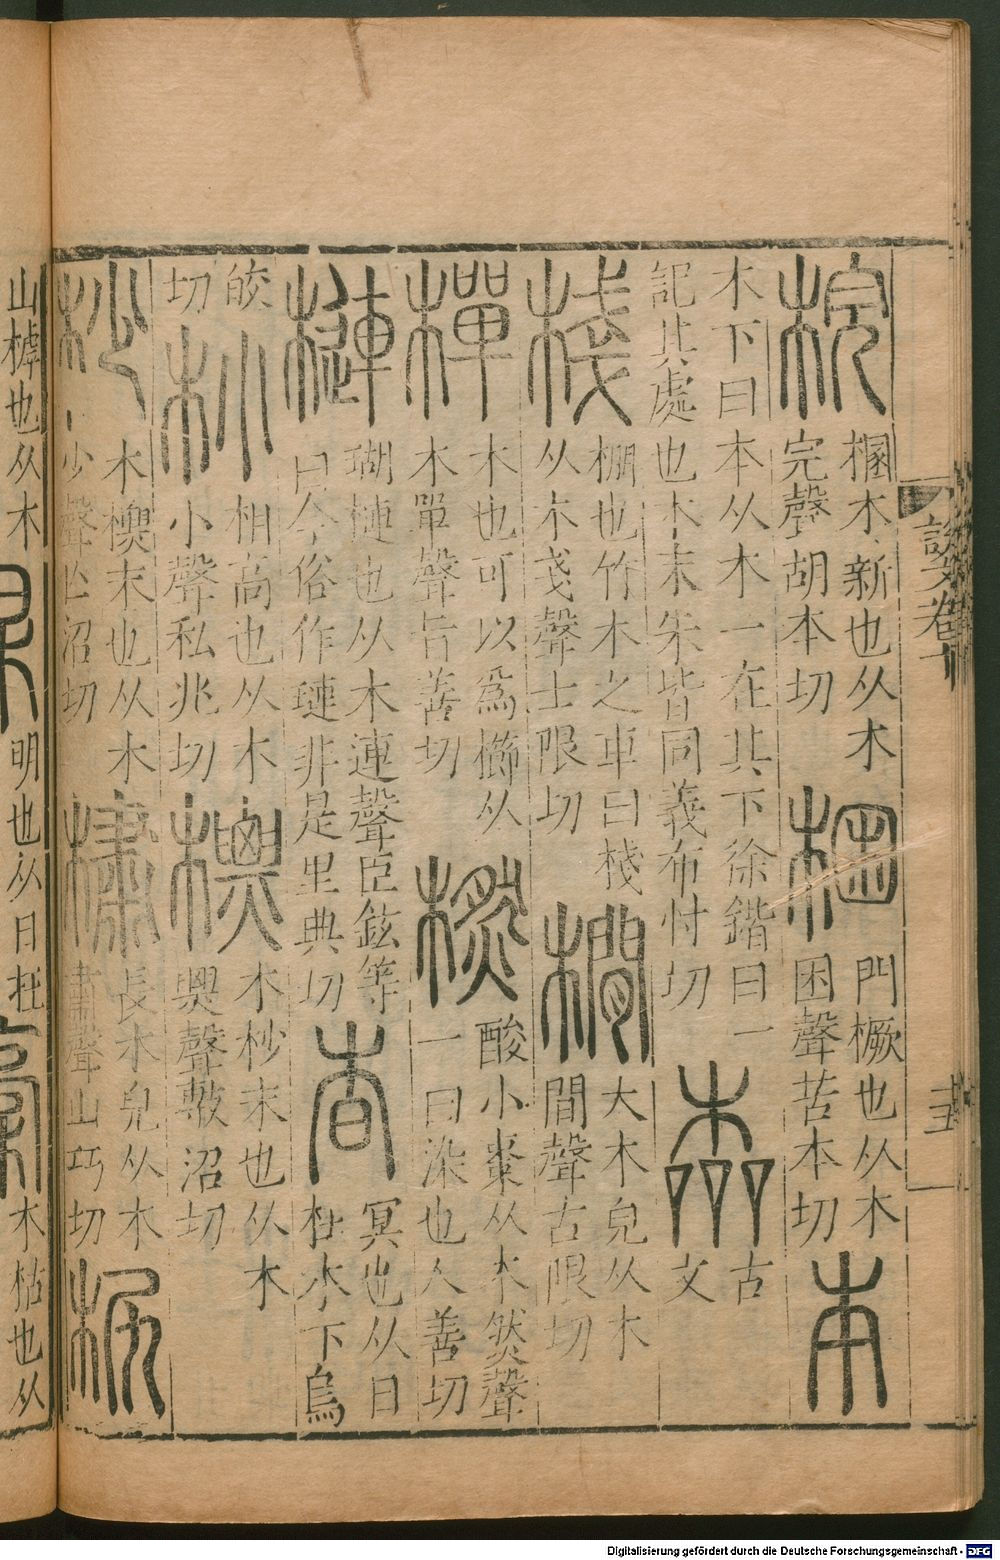 梡
梱木新也从木
完聲胡本切
梱
門橛也从木
困聲苦本切
本
木下曰本从木一在其下徐鍇曰一
記其處也本末朱皆同義布忖切
古
文
棧
棚也竹木之車曰棧
从木戔聲士限切
橌
大木皃从木
間聲古限切
樿
木也可以爲櫛从
木單聲旨善切
橪
酸小棗从木然聲
一曰染也人善切
槤
瑚槤也从木連聲臣鉉等
曰今俗作璉非是里典切
杳
冥也从日
杜木下烏
皎
切
朻
相高也从木
小聲私兆切
㯱
木杪末也从木
㒸聲敷沼切
杪
木標末也从木
少聲亡沼切
橚
長木皃从木
肅聲山巧切
柅
山樗也从木
明也从日
木枯也从
說文卷十
十五
Digitalisierung gefördert durch die Deutsche Forschungsgemeinschaft - DFG